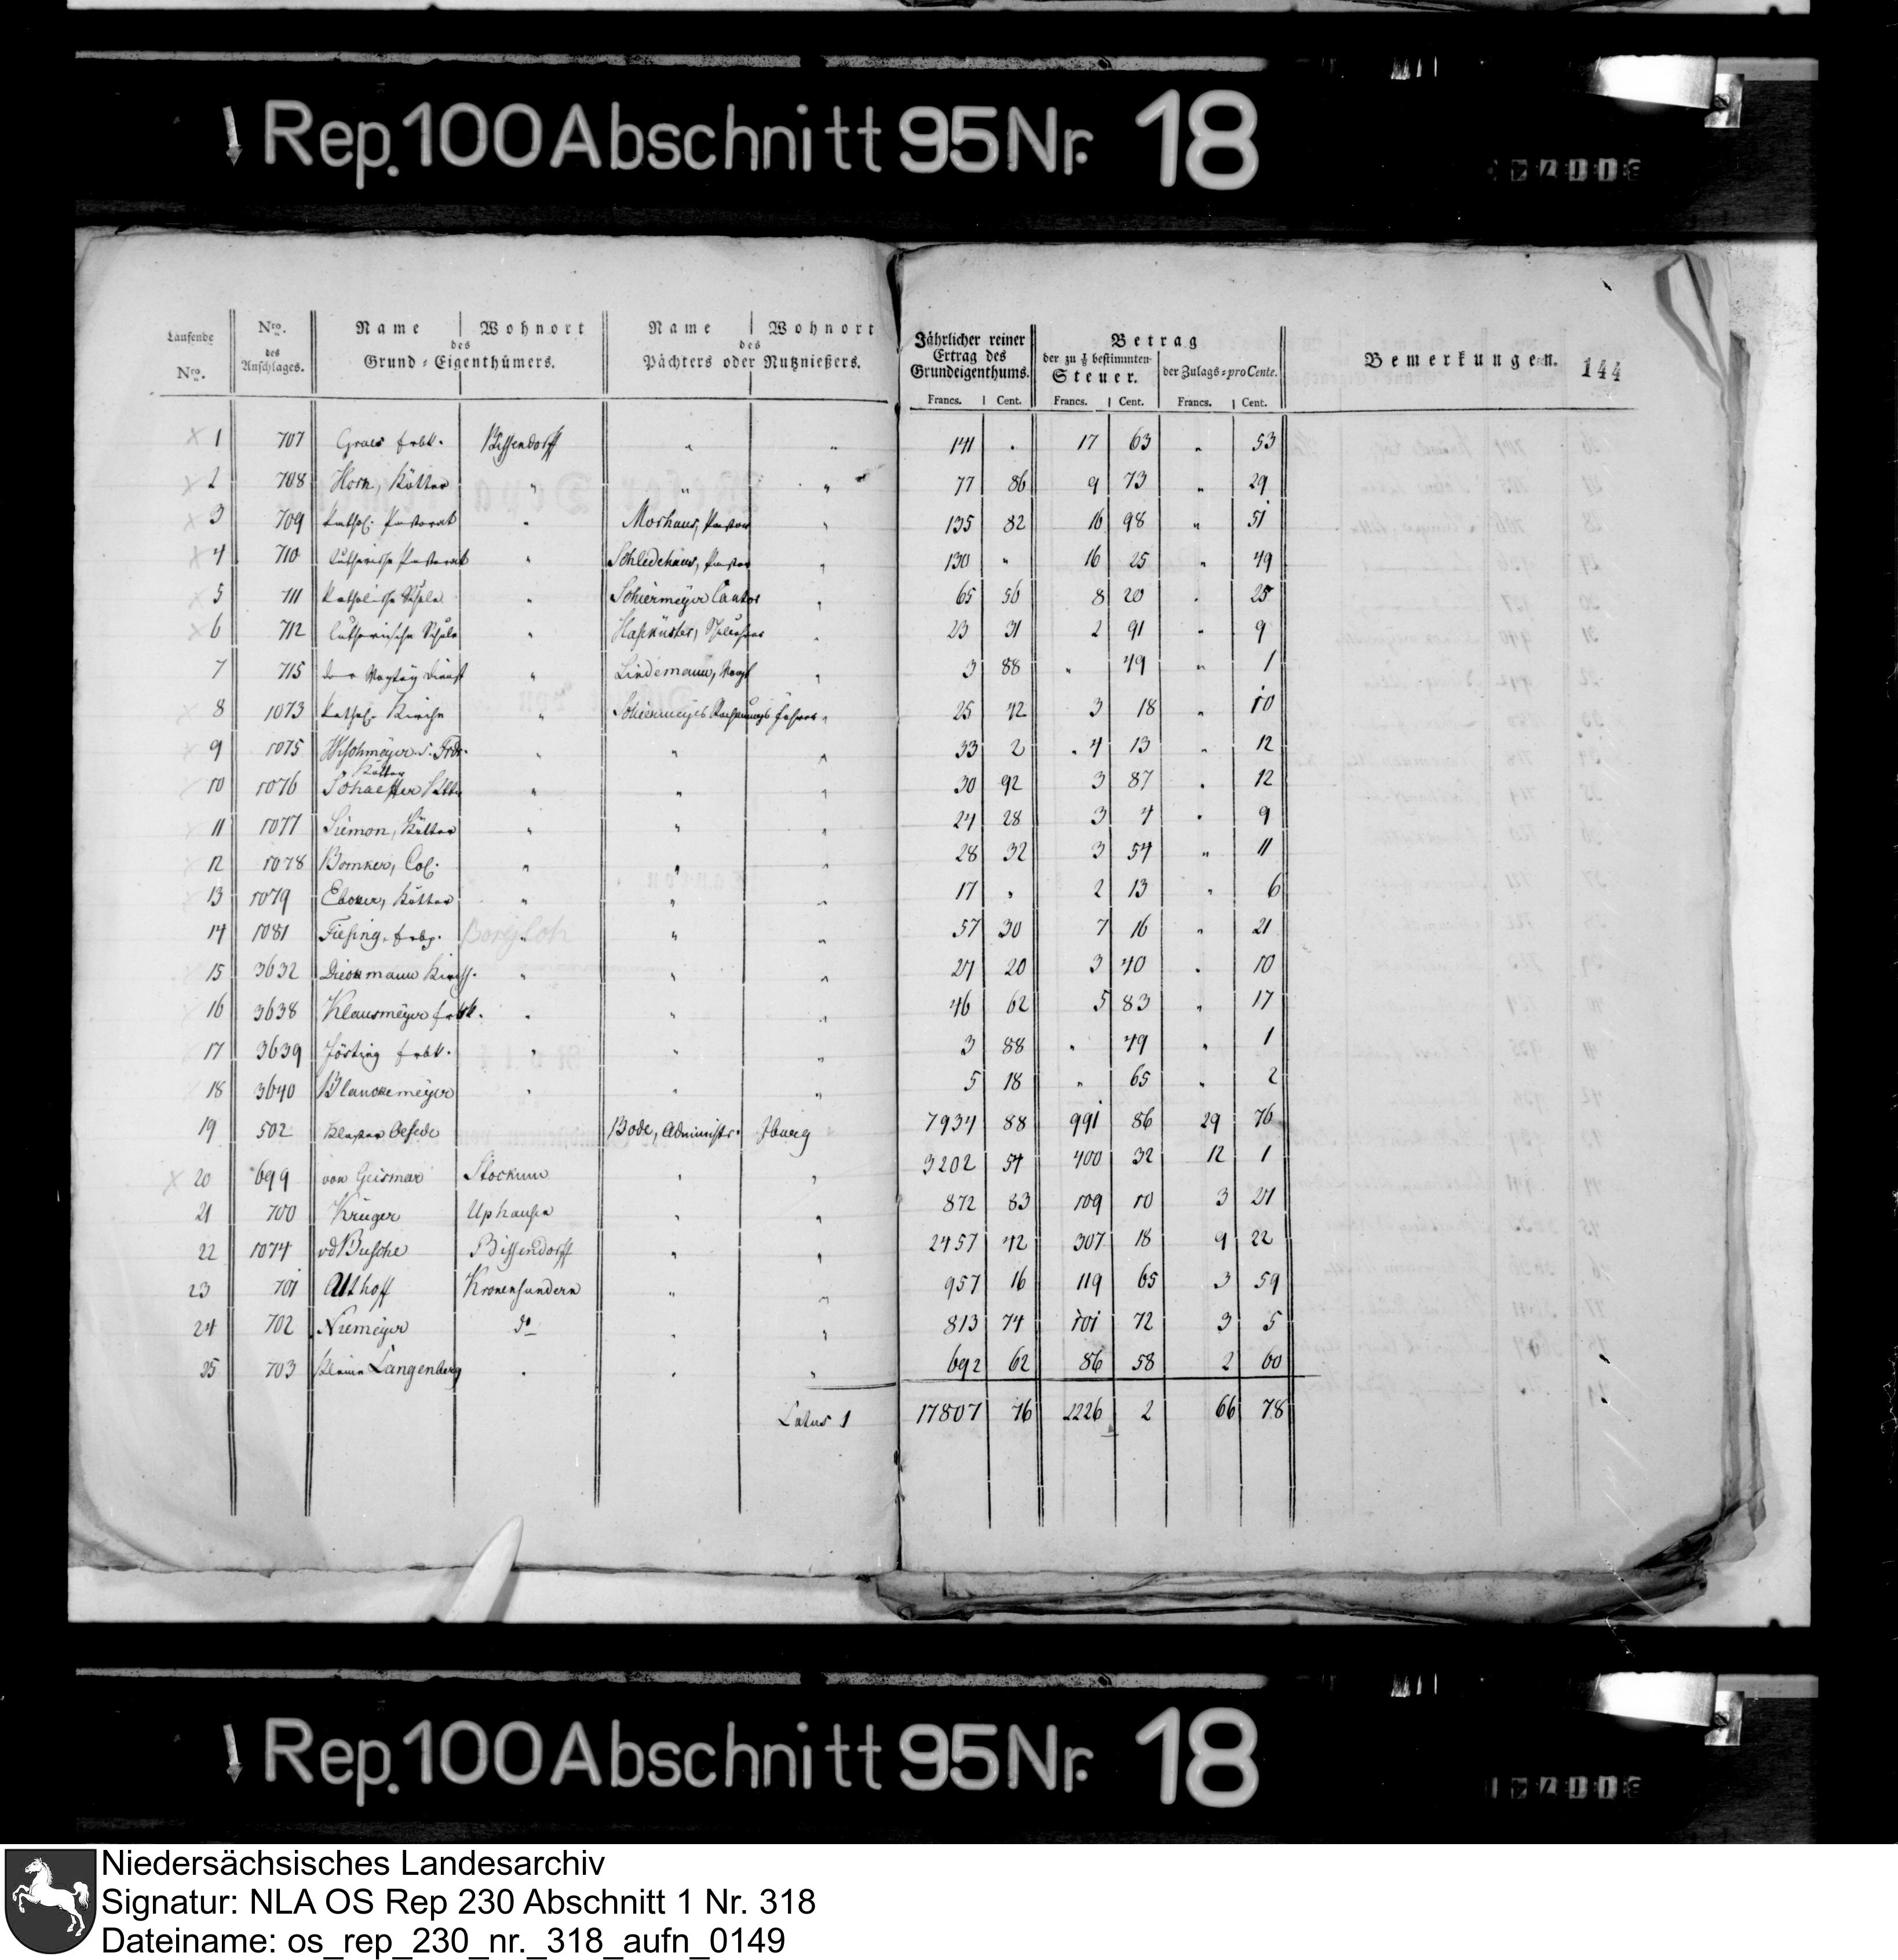 Rep. 100 Abschnitt 95 Nr. 18
Laufende Nro. | Nro. des Anschlages. | Name | Wohnort des Grund-Eigenthümers. | Name | Wohnort des Pächters oder Nutznießers. | Jährlicher reiner Ertrag des Grundeigenthums. | Betrag der zu ⅛ bestimmten Steuer. | der Zulags-pro Cente. | Bemerkungen. 144
Francs. | Cent. | Francs. | Cent. | Francs. | Cent.
1 707 Bissendorff " " 141 " 17 63 " 53
2 708 Horn, Kötter " " " 77 86 9 73 " 29
3 709 Kathol. Pastorat " Morhaus, Pastor " 135 82 16 98 " 51
4 710 Lutherische Pastorat " Schledehaus, Pastor " 130 " 16 25 " 49
5 711 Katholische Schule " Schiermeyer Cantor " 65 56 8 20 " 25
6 712 Lutherische Schule " " 23 31 2 91 " 9
7 715 " Lindemann, Vogt " 3 88 " 49 " 1
8 1073 Kathol. Kirche " Schiermeyer Rechnungsführer " 25 42 3 18 " 10
9 1075 " " " 33 2 4 13 " 12
10 1076 Schaeffer Kötter " " " 30 92 3 87 " 12
11 1077 Siemon, Kötter " " " 24 28 3 4 " 9
12 1078 Bomker, Col. " " " 28 32 3 54 " 11
13 1079 Kötter " " " 17 " 2 13 " 6
14 1081 Borgloh " " 57 30 7 16 " 21
15 3632 Dieckmann " " " 27 20 3 40 " 10
16 3638 Klausmeyer " " " 46 62 5 83 " 17
17 3639 Jösting " " " 3 88 " 49 " 1
18 3640 Blanckemeyer " " " 5 18 " 65 " 2
19 502 Kloster Oesede Bode, Administr. Iburg 7934 88 991 86 29 76
20 699 von Geismar Stockum " " 3202 54 400 32 12 1
21 700 Krüger Uphausen " " 872 83 109 10 3 27
22 1074 vd Bussche Bissendorff " " 2457 42 307 18 9 22
23 701 Althoff Kronensundern " " 957 16 119 65 3 59
24 702 Niemeyer do " " 813 74 101 72 3 5
25 703 Kleine Langenberg " " " 692 62 86 58 2 60
Latus 1 17807 76 2226 2 66 78
Rep. 100 Abschnitt 95 Nr. 18
Niedersächsisches Landesarchiv
Signatur: NLA OS Rep 230 Abschnitt 1 Nr. 318
Dateiname: os_rep_230_nr._318_aufn_0149